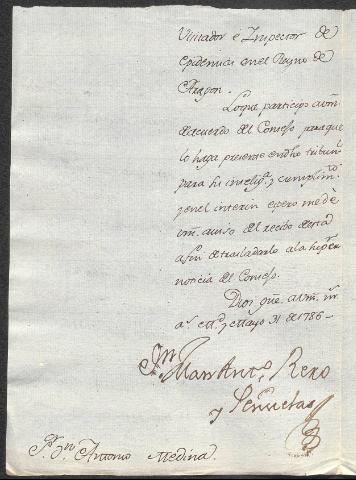 Visitador é Inspector de
epidemias en el Reyno de
Aragon.
Loque participo avm.
deacuerdo del Consejo paraque
lo haga presente endho tribun.l
para su intelig.a y cumplim.to
yenel interin espero me dè
vm. aviso del recibo de esta
afin detrasladarlo ala Super.or
noticia del Consejo.
Dios gue. avm. m.s
a.s Mayo 31 de 1786
y Peñuelas
S.r D.n Antonio Medina.